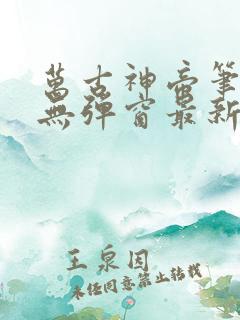 萬古神帝筆
無彈窗最新
王泉因
未任同意禁止转载